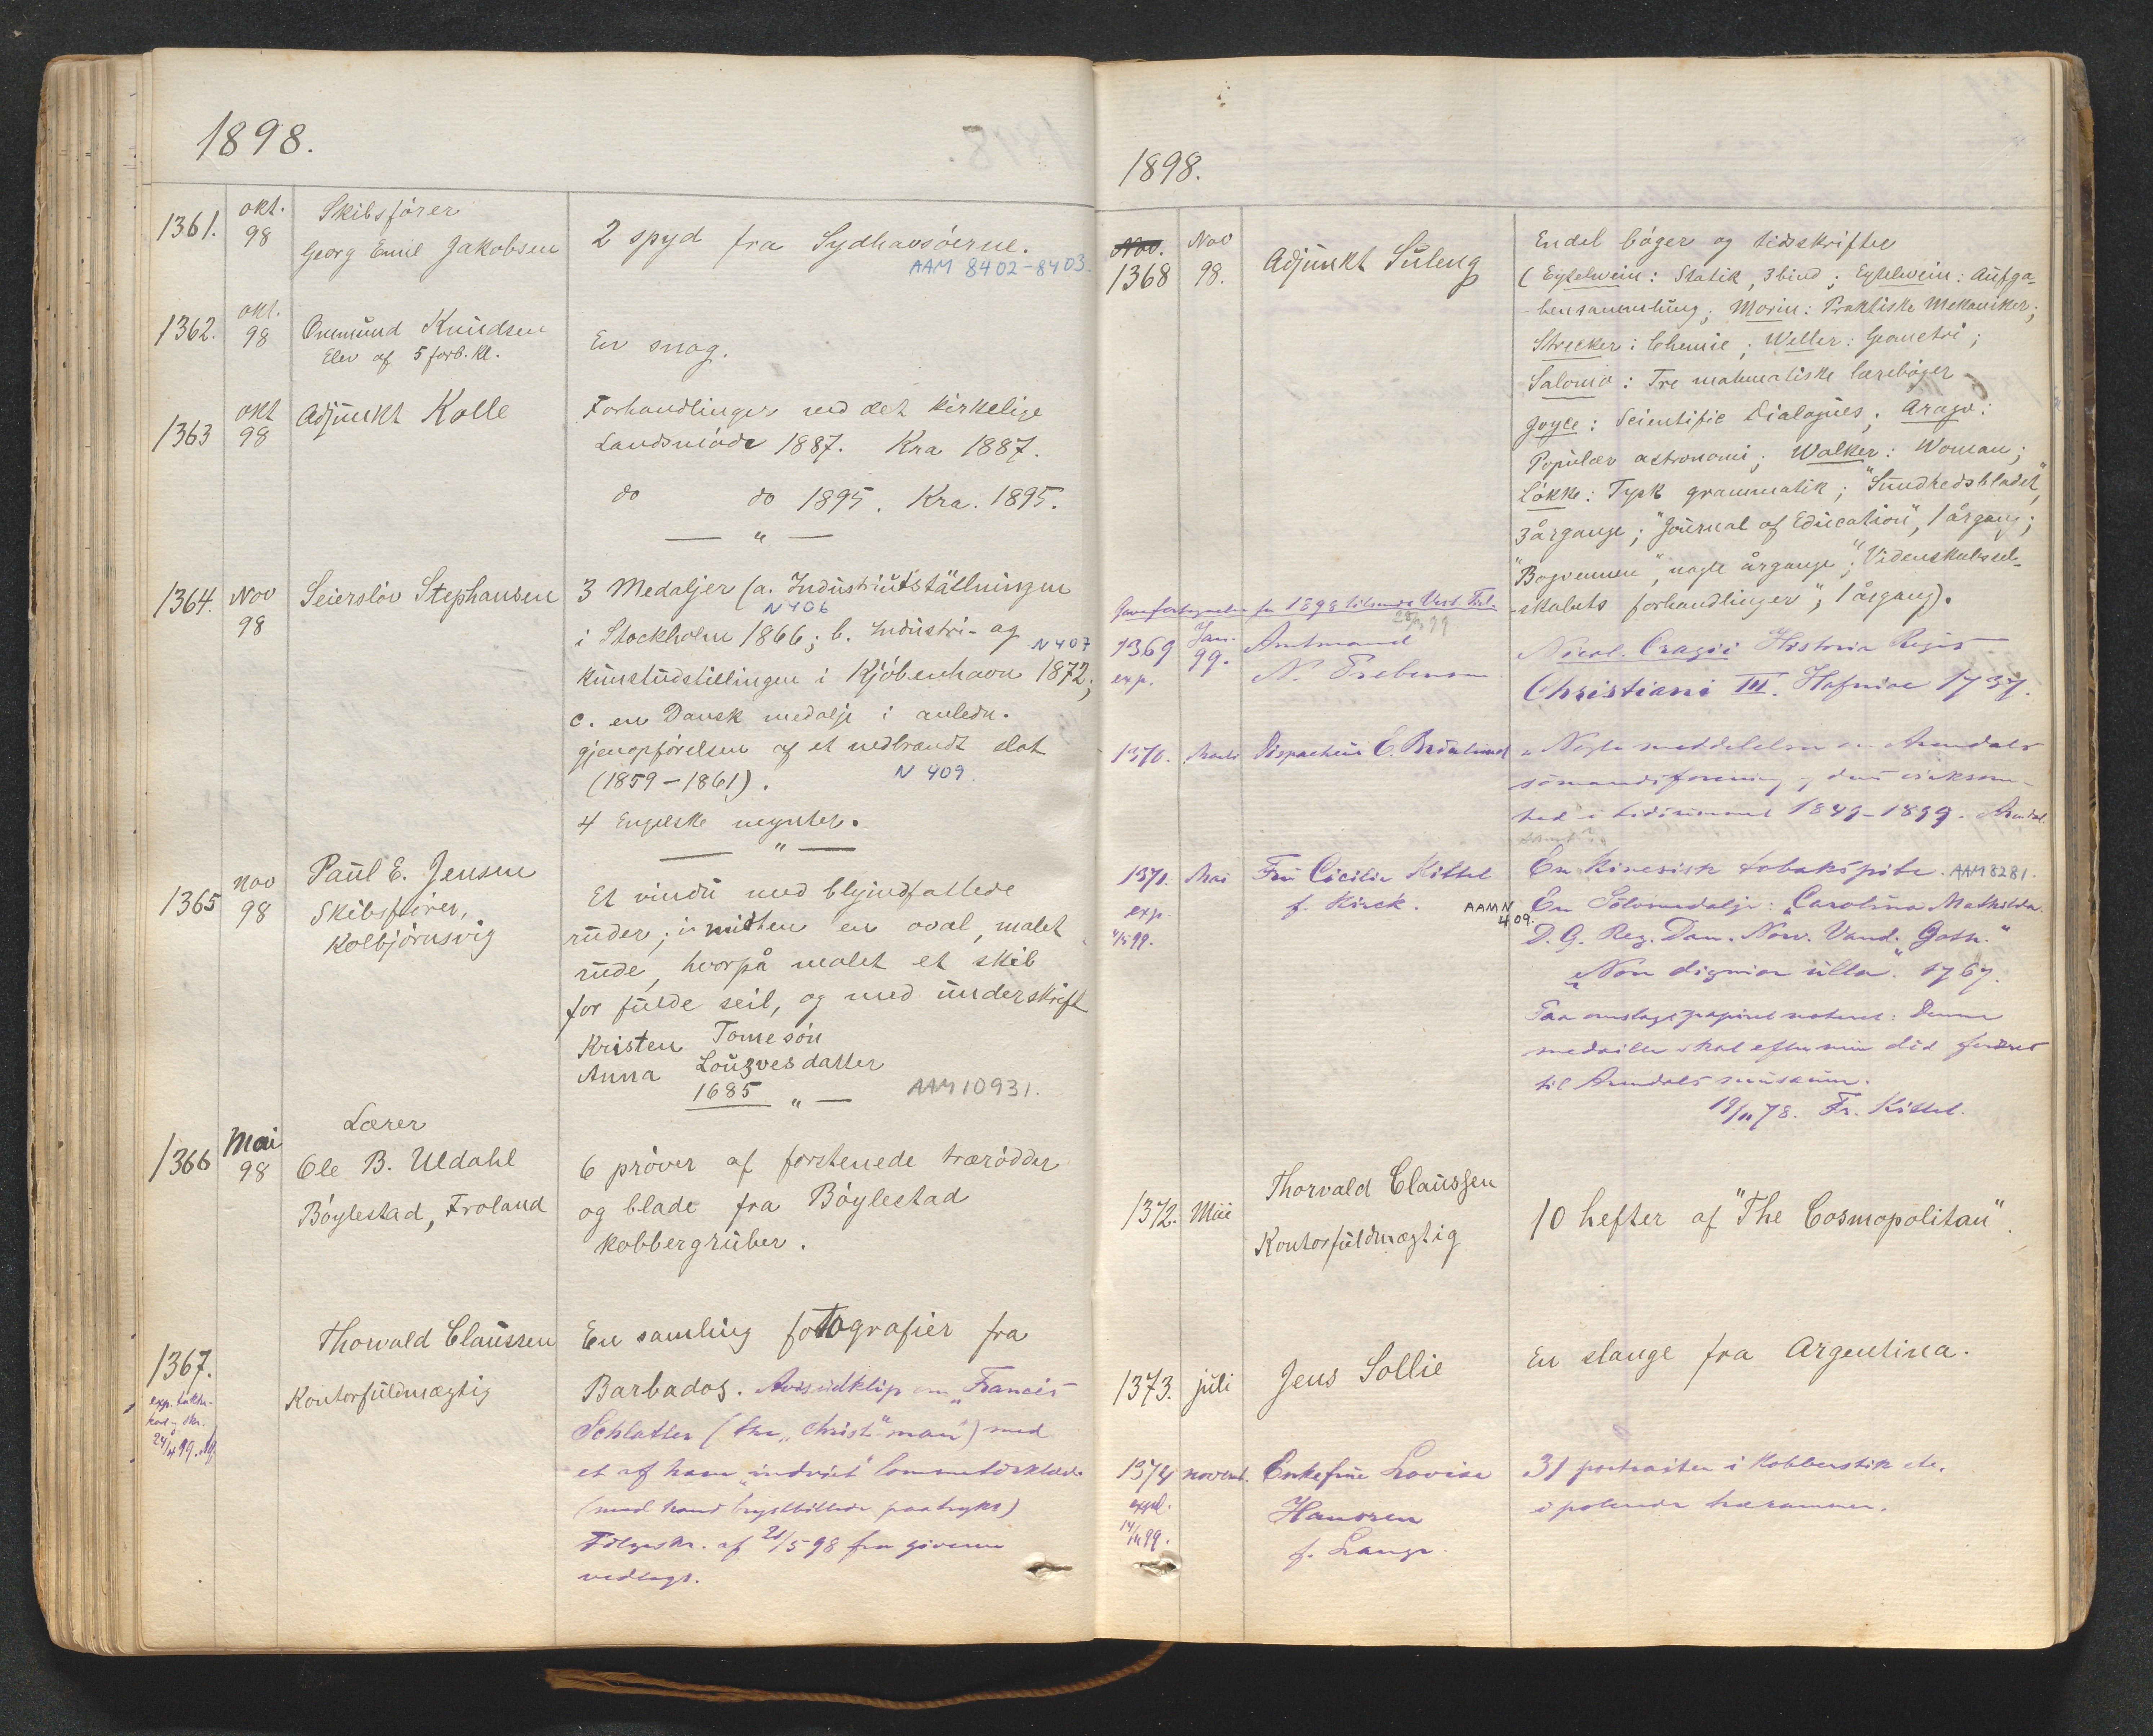 1898.
1361. okt. 98 Skibsfører
Georg Emil Jakobsen
2 spyd fra Sydhavsöerne.
AAM 8402-8403.
1362. okt. 98 Ommund Knudsen
Elev af 5 forb. kl.
En snog.
1363 okt 98 Adjunkt Kolle
Forhandlinger ved det kirkelige
Landsmöde 1887. Kra 1887.
do do 1895. Kra. 1895.
— " —
1364. Nov 98 Seierslöv Stephansen
3 Medaljer (a. Industriutställningen
N 406
i Stockholm 1866; b. Industri- og N 407
kunstudstillingen i Kjöbenhavn 1872;
c. en Dansk medalje i anledn.
gjenopförelsen af et nedbrændt slot
(1859-1861). N 409.
4 Engelske mynter.
— " —
1365 nov 98 Paul E. Jensen
Skibsförer,
Kolbjörnsvig
Et vindu med blyindfattede
ruder; i midten en oval, malet
rude, hvorpå malet et skib
for fulde seil, og med underskrift
Kristen Tomesön
Anna Louzvesdatter
1685 " — AAM 10931.
1366 Mai 98 Lærer
Ole B. Uldahl
Böylestad, Froland
6 pröver af forstenede trærödder
og blade fra Böylestad
kobbergruber.
1367. Thorvald Claussen
Kontorfuldmægtig
exp. takke-
kort- skr.
24/4 99.
En samling fotografier fra
Barbados. Avisudklip om „Francis
Schlatter (the „Christ" man") med
et af ham „indviet" lommetörklæde
(med hans brystbillede paatrykt)
Fölgeskr. af 21/5 98 fra giveren
vedlagt.
1898.
Nov.
1368 Nov 98. Adjunkt Suleng
Endel böger og tidsskrifter
(Eytelwein: Statik, 3 bind; Eytelwein: Aufga-
-bensammlung; Morin: Praktiske Mekaniker;
Strecker: Chemie; Weller: Geometri;
Salomo: Tre matematiske læreböger
Joyce: Scientific Dialogues; Arago:
Populær astronomi; Walker: Woman;
Lökke: Tysk grammatik; "Sundhedsbladet",
3 årgange; "Journal of Education", 1 årgang;
"Bogvennen", nogle årgange; "Videnskabssel-
-skabets forhandlinger", 1 årgang).
Gavefortegnelse for 1898 tilsendt Vest.
1369 exp. Jan. 99. Amtmand
N. Prebensen
Nicol. Cragii Historia Regis
Christiani III. Hafniae 1737.
1370. Marts Dispacheur E.
„Nogle meddelelser om Arendals
sömandsforening og dens virksom-
hed i tidsrummet 1849-1899. Arendal.
1371. exp. Mai Fru Cicilie Kittel
f. Kirck.
En kinesisk tobakspibe. AAM 8281.
AAM N 409.
En Sölvmedalje: „Carolina Mathilda
D. G. Reg. Dan. Norv. Vand. Goth."
„Non dignior ulla". 1767.
Paa omslagspapiret noteret: Denne
medaille skal efter min död
til Arendals museum.
19/11 78. Fr. Kittel.
1372. Mai Thorvald Claussen
Kontorfuldmægtig
10 hefter af "The Cosmopolitan".
1373. juli Jens Sollie
En slange fra Argentina.
1374 novemb. Enkefrue Lovise
Hanssen
f. Lange.
exped.
14/11 99.
31 portraiter i kobberstik etc.
i polerede trærammer.